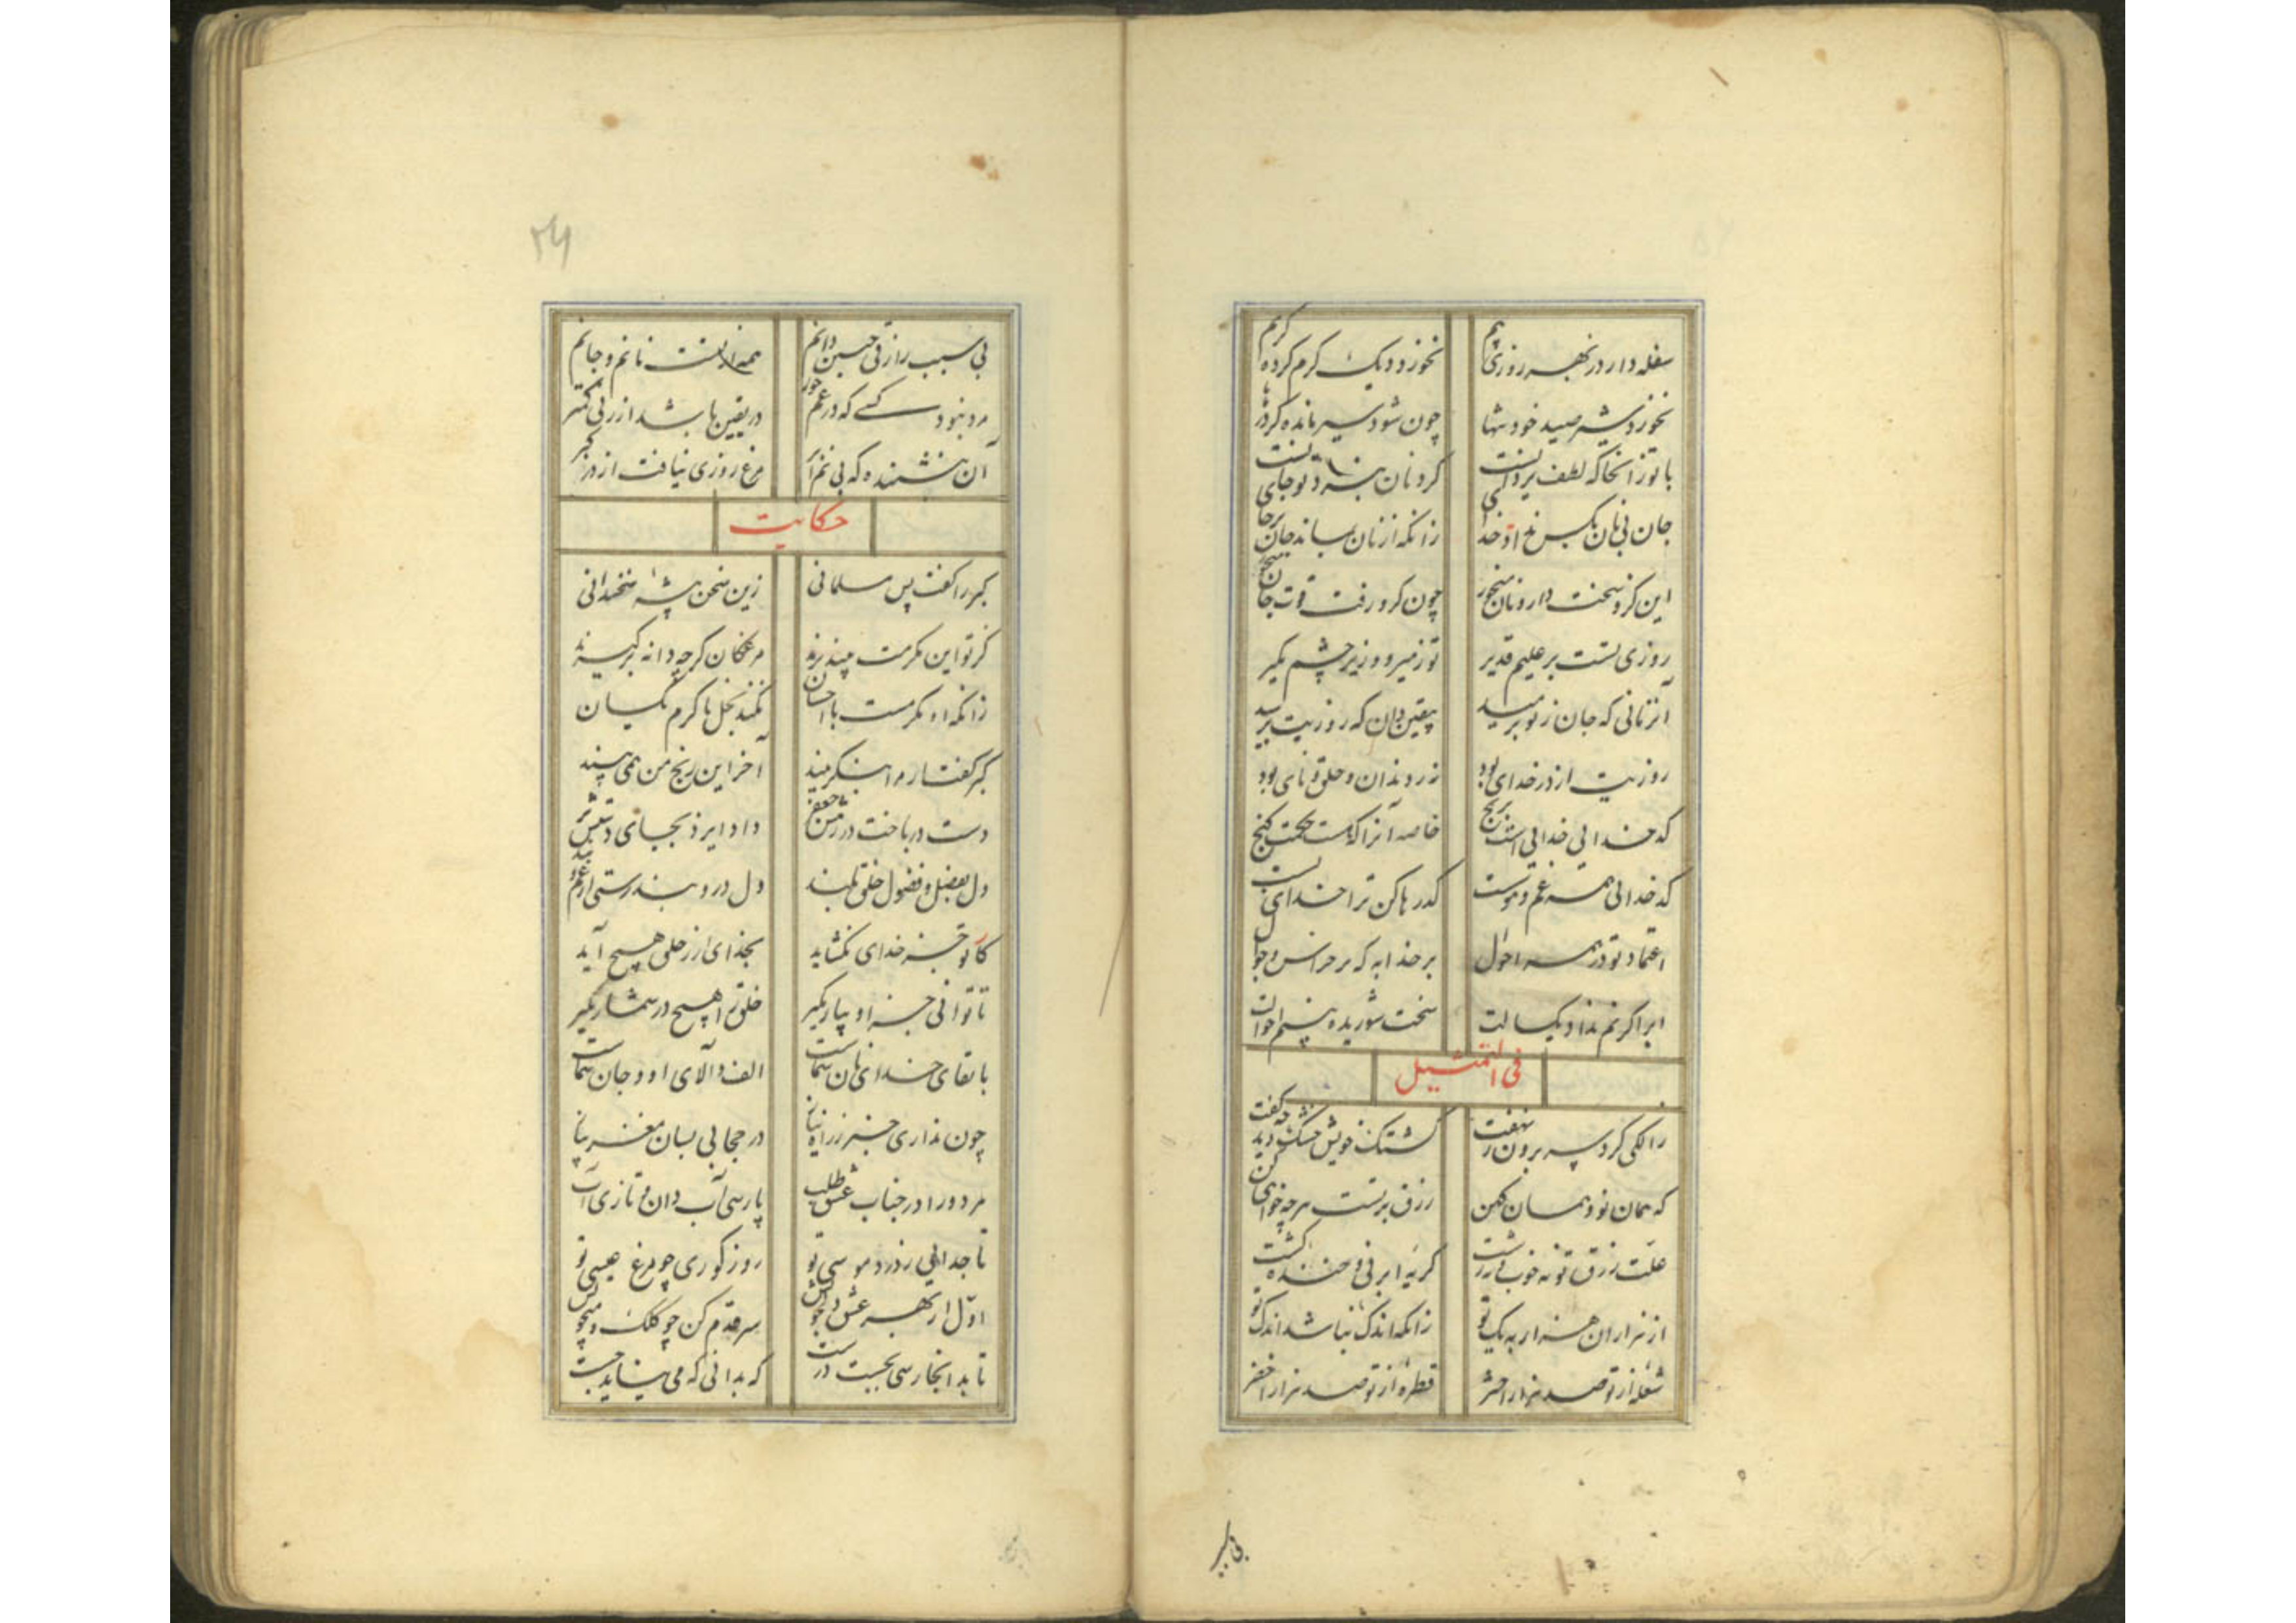 سفله دارد ز بهر روزی بیم
نخورد دیک گرم کرده کریم
نخورد شیر صید خود تنها
چون شود سیر مانده کرد رها
با تو زانجا که لطف یزدانست
کرو نان بدست تو جانست
جان بی نان بکس نداد خدای
زانکه از نان بماند جان برجای
این کرو سخت دار و نان میخور
چون کرو رفت قوت جان میخور
روزی تست بر علیم قدیر
تو ز میر و وزیر خشم مگیر
آنزمانی که جان ز تو برمید
بیقین دان که روزیت برسید
روزیت از در خدای بود
نز دندان و حلق و نای بود
کدخدایی خدایی است برنج
خاصه آنرا که نیست حکمت گنج
کدخدائی همه غم و هوس است
کد رها کن ترا خدای بس است
اعتماد تو در همه احوال
بر خدا به که بر خراس و جوال
ابر اگر نم نداد یکسالت
سخت شوریده بینم احوالت
فی التمثیل
زالکی کرد سر برون ز نهفت
کشتک خویش خشک دید و بگفت
که همان نو و همان کهن
رزق برتست هرچه خواهی کن
علّت رزق تو نه خوب و نه زشت
کریهٔ ابر نی و خندهٔ کشت
از هزاران هزار به یک تو
زانکه اندک نباشد اندک تو
شعله از تو صد هزار اختر
قطره از تو صد هزار اخضر
بی سبب
۲۶
بی سبب رازقی یقین دانم
همه از تست نانم و جانم
مرد نبود کسی که در غم خور
در یقین باشد از زنی کمتر
آن بنشنیده که بی نم ابر
مرغ روزی نیافت از در گبر
حکایت
گبر را گفت پس مسلمانی
زین سخن پیشهٔ سخندانی
کز تو این مکرمت بنپذیرند
مرغکان گرچه دانه برگیرند
زانکه او مکرمست با احسان
نکند بخل با کرم یکسان
گبر گفت ار مرا بنگزیند
آخر این رنج من همی بیند
دست در باخت در رهش جعفر
داد ایزد بجای دستش پر
دل بفضل و فضول خلق مبند
دل درو بند رستی از غم و بند
کار تو جز خدای نگشاید
بخدای ار ز خلق هیچ آید
تا توانی جز او بیار مگیر
خلق را هیچ در شمار مگیر
با بقای خدای نان شماست
الف و الای او و جان شماست
چون نداری خبر ز راه نیاز
در حجابی بسان مغز پیاز
مرد و را در جناب عشق طلب
پارسی آب دان و تازی آب
تا جدایی ز درد موسی تو
روز کوری چو مرغ عیسی تو
اوّل از بهر عشق دلجویش
سر قدم کن چو کلک و میجویش
تا بدانجا رسی بجست درست
که بدانی که می نباید جست